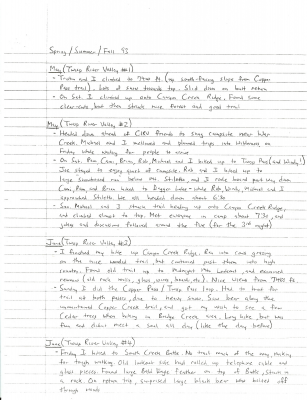 Spring / Summer / Fall 93
May (Twisp River Valley #1)
- Tristan and I climbed to 7400 ft. (on south-facing slope from Copper
Pass trail). Lots of snow towards top. Slid down on butt return
- On Sat. I climbed up onto Canyon Creek Ridge. Found some
clear-cuts, but then struck nice forest and good trail
May (Twisp River Valley #2)
- Headed down ahead of friends to stay complete water
Creek. Michael and I mellowed and planned trips into wilderness on
Friday while waiting for people to arrive
- On Sat. Pam, Brian, Rob, Michael and I hiked up to Twisp Pass (and Windy!)
Joe stayed to enjoy quiet of campsite. Rob and I hiked up to
large snowbound below Mt. Stiletto and I then hiked part way down
Pam, and Brian hiked to Dagger Lake - while Rob, Windy, Michael and I
appreciated Stiletto. We all headed down about 6:30
- Sun. Michael and I struck on heading up onto Canyon Creek Ridge,
and climbed almost to top. Met everyone in camp about 7:30, and
jokes and discussions followed around the fire (for the 3rd night)
June (Twisp River Valley #3)
- I finished my hike up Canyon Creek Ridge. Ran into cows grazing
on the nice wooded trail, but continued past them into high
country. Found old trail up to Midnight Mtn Lookout, and examined
remains (old rock walls, glass, wires, boards, etc). Nice views from 7400 ft.
- Sunday I did the Copper Pass / Twisp Pass loop. Had to hunt for
trail at both passes, due to heavy snow. Saw bear along the
unmaintained Copper Creek trail, and got my neck in a few
Cedar trees when hiking on Bridge Creek side. Long hike, but was
fun and didn't meet a soul all day (like the day before)
June (Twisp River Valley #4)
- Friday I hiked to South Creek Butte. No trail much of the way, making
for tough walking. Old lookout site had rolled up telephone cable and
glass pieces. Found large Bald Eagle feather on top of Butte, stuck in
a rock. On option trip, surprised large black bear who bolted off
through woods